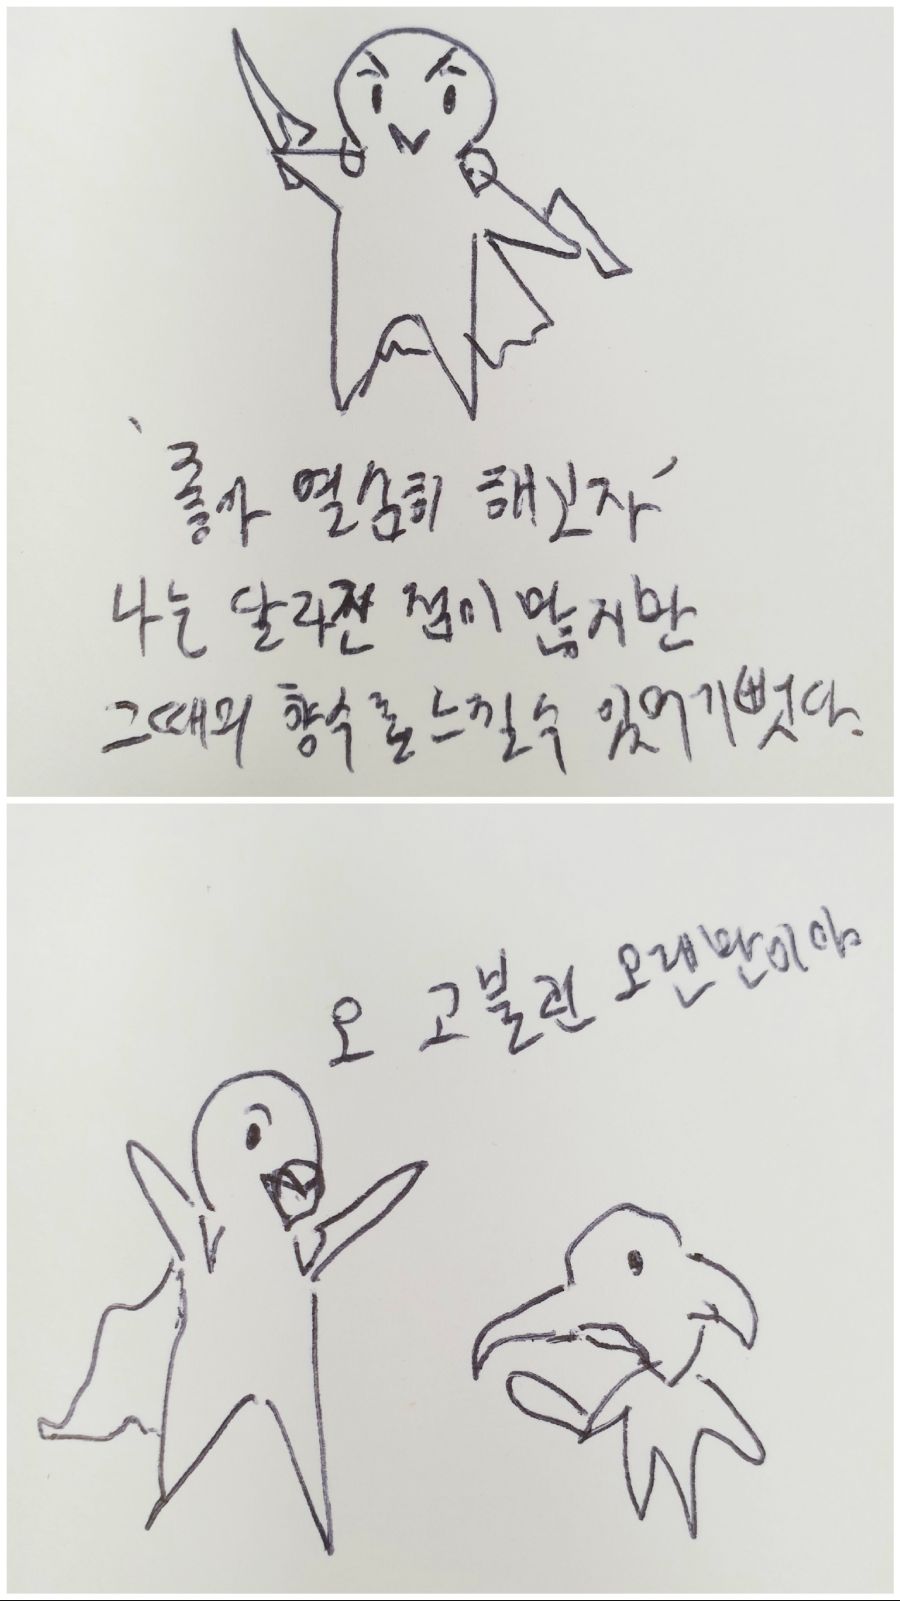 '좋아 열심히 해보자'
나는 달라진 점이 많지만
그때의 향수를 느낄수 있어 기뻤다.
오 고블린 오랜만이야